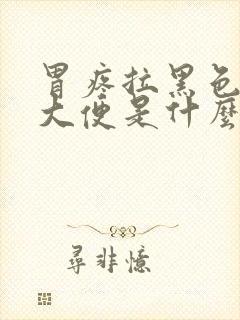 胃疼拉黑色
大便是什麼
尋非憶